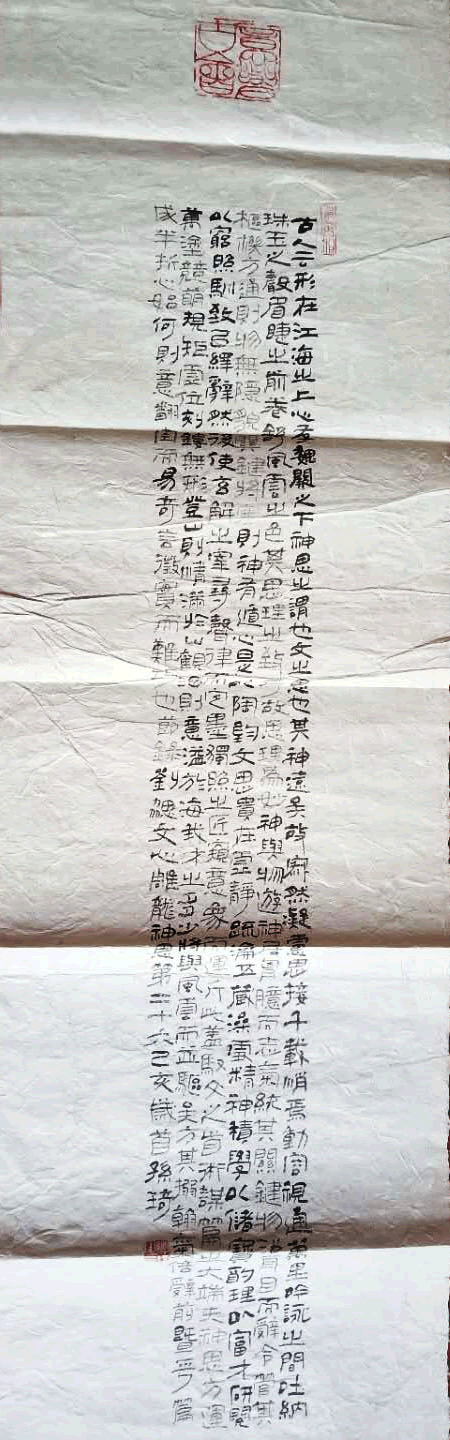 古人云形在江海之上心存魏闕之下神思之謂也文之思也其神遠矣故寂然凝慮思接千載悄焉動容視通萬里吟詠之間吐納
珠玉之聲眉睫之前卷舒風雲之色其思理之致乎故思理為妙神與物遊神居胷臆而志氣統其關鍵物沿耳目而辭令管其
樞機方通則物無隱貌關鍵將塞則神有遁心是以陶鈞文思貴在虛靜疏瀹五藏澡雪精神積學以儲寶酌理以富才研閱
以窮照馴致以繹辭然後使玄解之宰尋聲律而定墨獨照之匠窺意象而運斤此蓋馭文之首術謀篇之大端夫神思方運
萬塗競萌規矩虛位刻鏤無形登山則情滿於山觀海則意溢於海我才之多少將與風雲而並驅矣方其搦翰氣倍辭前暨乎篇
成半折心始何則意翻空而易奇言徵實而難巧也節錄劉勰文心雕龍神思第二十六己亥歲首孫琦